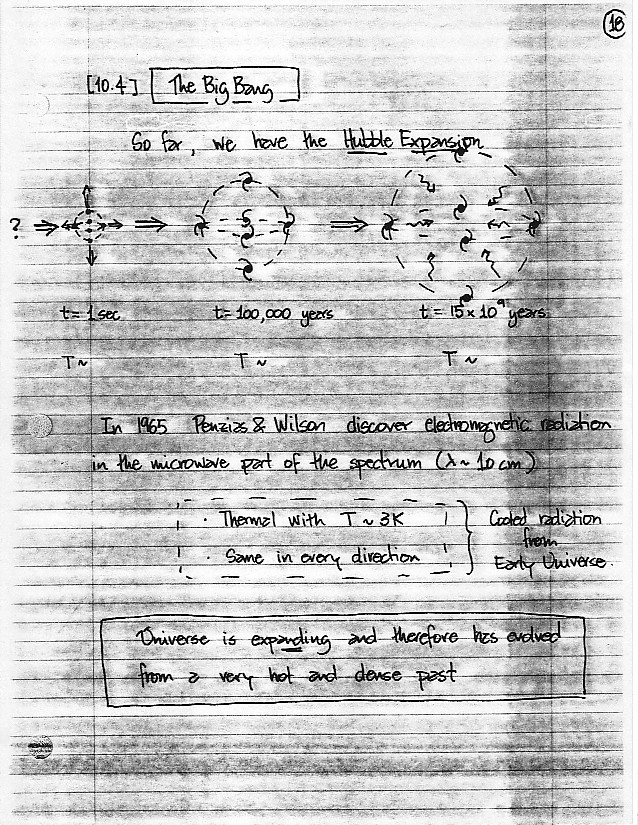 18
[10.4] The Big Bang
So far, we have the Hubble Expansion
?
t = 1 sec t = 100,000 years t = 15 x 10⁹ years
T ~ T ~ T ~
In 1965 Penzias & Wilson discover electromagnetic radiation
in the microwave part of the spectrum (λ ~ 10 cm)
· Thermal with T ~ 3K
· Same in every direction
Cooled radiation
from
Early Universe.
Universe is expanding and therefore has evolved
from a very hot and dense past